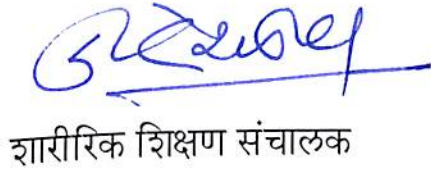 शारीरिक शिक्षण संचालक